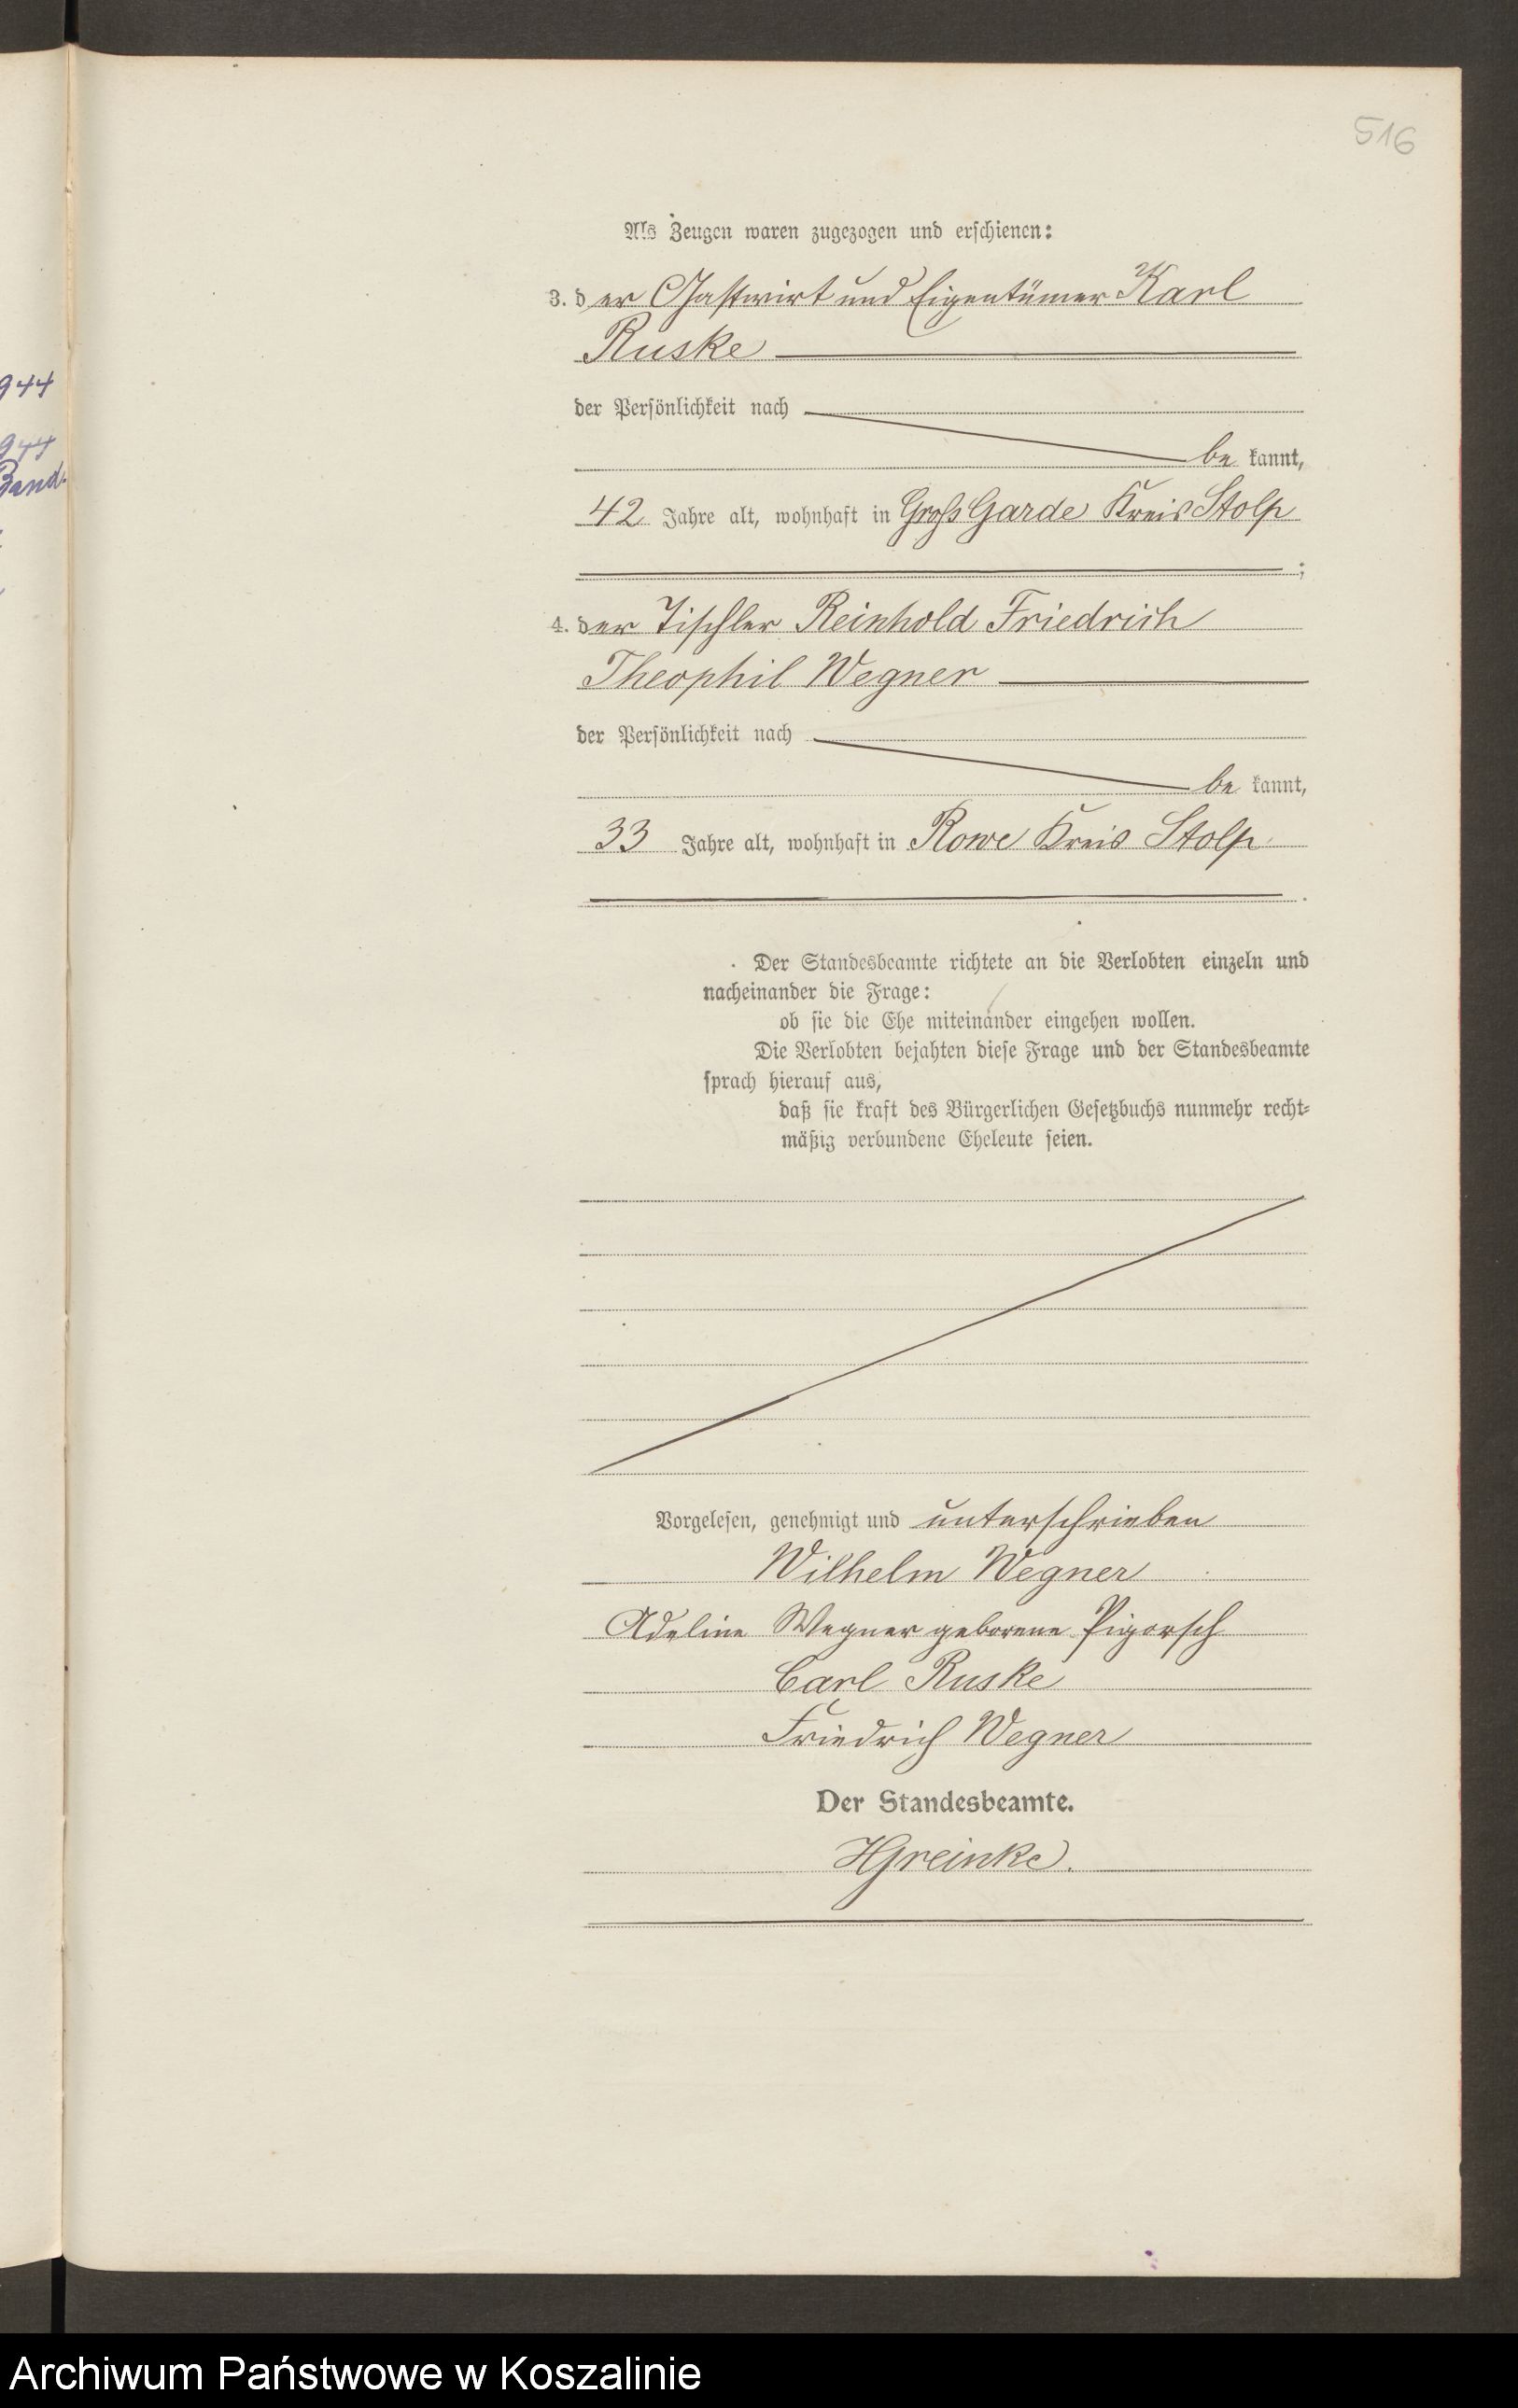 516
944
944
Band.
Als Zeugen waren zugezogen und erschienen:
3. der Gastwirt und Eigentümer Karl
Ruske
der Persönlichkeit nach
be kannt,
42 Jahre alt, wohnhaft in Gross Garde Kreis Stolp
;
4. der Tischler Reinhold Friedrich
Theophil Wegner
der Persönlichkeit nach
be kannt,
33 Jahre alt, wohnhaft in Rowe Kreis Stolp
.
Der Standesbeamte richtete an die Verlobten einzeln und
nacheinander die Frage:
ob sie die Ehe miteinander eingehen wollen.
Die Verlobten bejahten diese Frage und der Standesbeamte
sprach hierauf aus,
daß sie kraft des Bürgerlichen Gesetzbuchs nunmehr recht-
mäßig verbundene Eheleute seien.
Vorgelesen, genehmigt und unterschrieben
Wilhelm Wegner
Adeline Wegner geborene Pigorsch
Carl Ruske
Friedrich Wegner
Der Standesbeamte.
HGreinke.
Archiwum Państwowe w Koszalinie